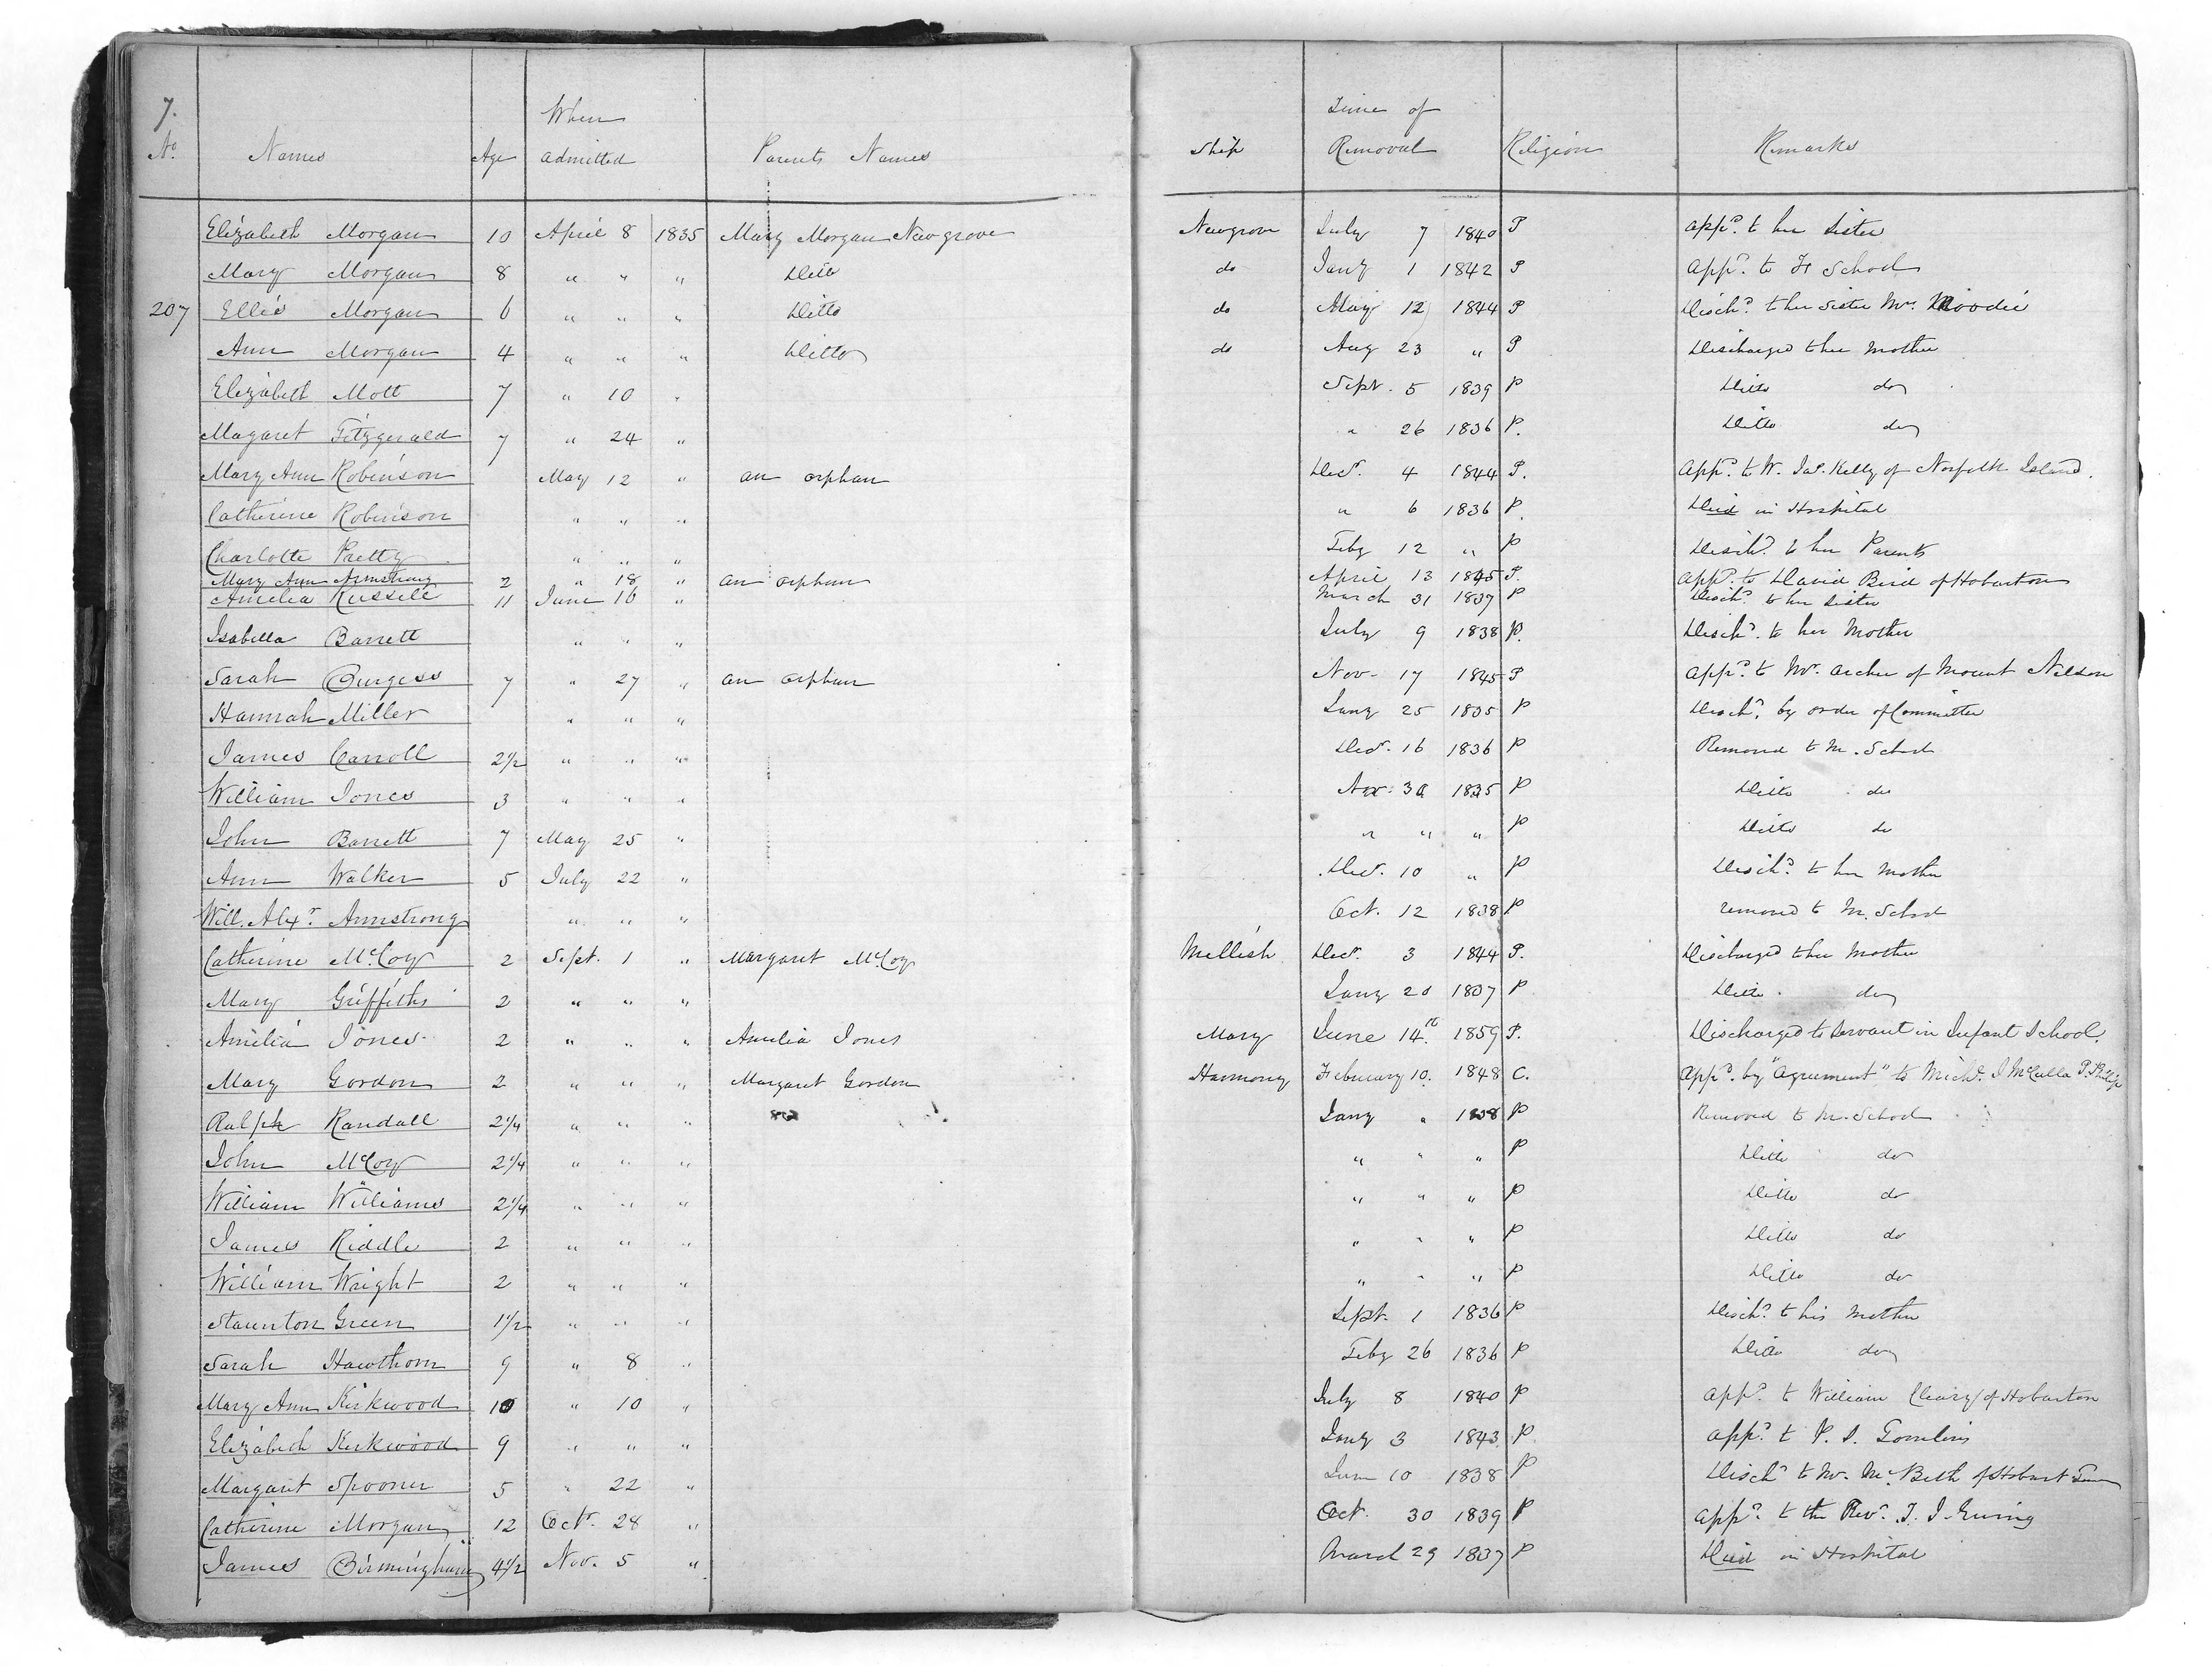 7.
No. Names Age When admitted Parents Names Ship Time of Removal Religion Remarks
Elizabeth Morgan 10 April 8 1835 Mary Morgan Newgrove Newgrove July 7 1840 P appd. to her Sister
Mary Morgan 8 " " " Ditto do Jany 1 1842 P appd. to F School
207 Ellis Morgan 6 " " " Ditto do May 12 1844 P Dischd. to her Sister Mrs. Moodie
Ann Morgan 4 " " " Ditto do Aug 23 " P Discharged to her Mother
Elizabeth Mott 7 " 10 " Sept. 5 1839 P Ditto do
Magaret Fitzgerald 7 " 24 " " 26 1836 P. Ditto do
Mary Ann Robinson May 12 " an orphan Decr. 4 1844 P. appd. to W. Jas. Kelly of Norfolk Island.
Catherine Robinson " " " " 6 1836 P. Died in Hospital
Charlotte Pretty " " " Feby 12 " P Dischd. to her Parents
Mary Ann Armstrong 2 " 18 " an orphan April 13 1845 P. appd. to David Bird of Hobarton
Amelia Russell 11 June 16 " March 31 1837 P Dischd. to her Sister
Isabella Barrett " " " July 9 1838 P. Dischd. to her Mother
Sarah Burgess 7 " 27 " an orphan Nov. 17 1845 P appd. to Mr. Archer of Mount Nelson
Hannah Miller " " " Jany 25 1835 P Dischd. by order of Committee
James Carroll 2½ " " " Decr. 16 1836 P Removed to M. School
William Jones 3 " " " Nov. 30 1835 P Ditto do
John Barrett 7 May 25 " " " " P Ditto do
Ann Walker 5 July 22 " Decr. 10 " P Dischd. to her Mother
Will. Alexr. Armstrong " " " Oct. 12 1838 P removed to M. School
Catherine McCoy 2 Sept. 1 " Margaret McCoy Mellish Decr. 3 1844 P. Discharged to her Mother
Mary Griffiths 2 " " " Jany 20 1837 P Ditto do
Amelia Jones 2 " " " Amelia Jones Mary June 14th. 1859 P. Discharged to Servant in Infant School.
Mary Gordon 2 " " " Margaret Gordon Harmony February 10. 1848 C. appd. by "Agreement" to Michl. J McCulla P. Philip
Ralph Randall 2¼ " " " Jany " 1838 P Removed to M. School
John McCoy 2¼ " " " " " " P Ditto do
William Williams 2¼ " " " " " " P Ditto do
James Riddle 2 " " " " " " P Ditto do
William Wright 2 " " " " " " P Ditto do
Staunton Green 1½ " " " Sept. 1 1836 P Dischd. to his Mother
Sarah Hawthorn 9 " 8 " Feby 26 1836 P Ditto do
Mary Ann Kirkwood 10 " 10 " July 8 1840 P appd. to William Cleary of Hobarton
Elizabeth Kirkwood 9 " " " Jany 3 1843 P appd. to P. S. Tomlins
Margaret Spooner 5 " 22 " June 10 1838 P Dischd to Mr. McBeth of Hobart Town
Catherine Morgan 12 Octr. 28 " Oct. 30 1839 P appd. to the Revd. T. J. Ewing
James Birmingham 4½ Nov. 5 " March 29 1837 P Died in Hospital